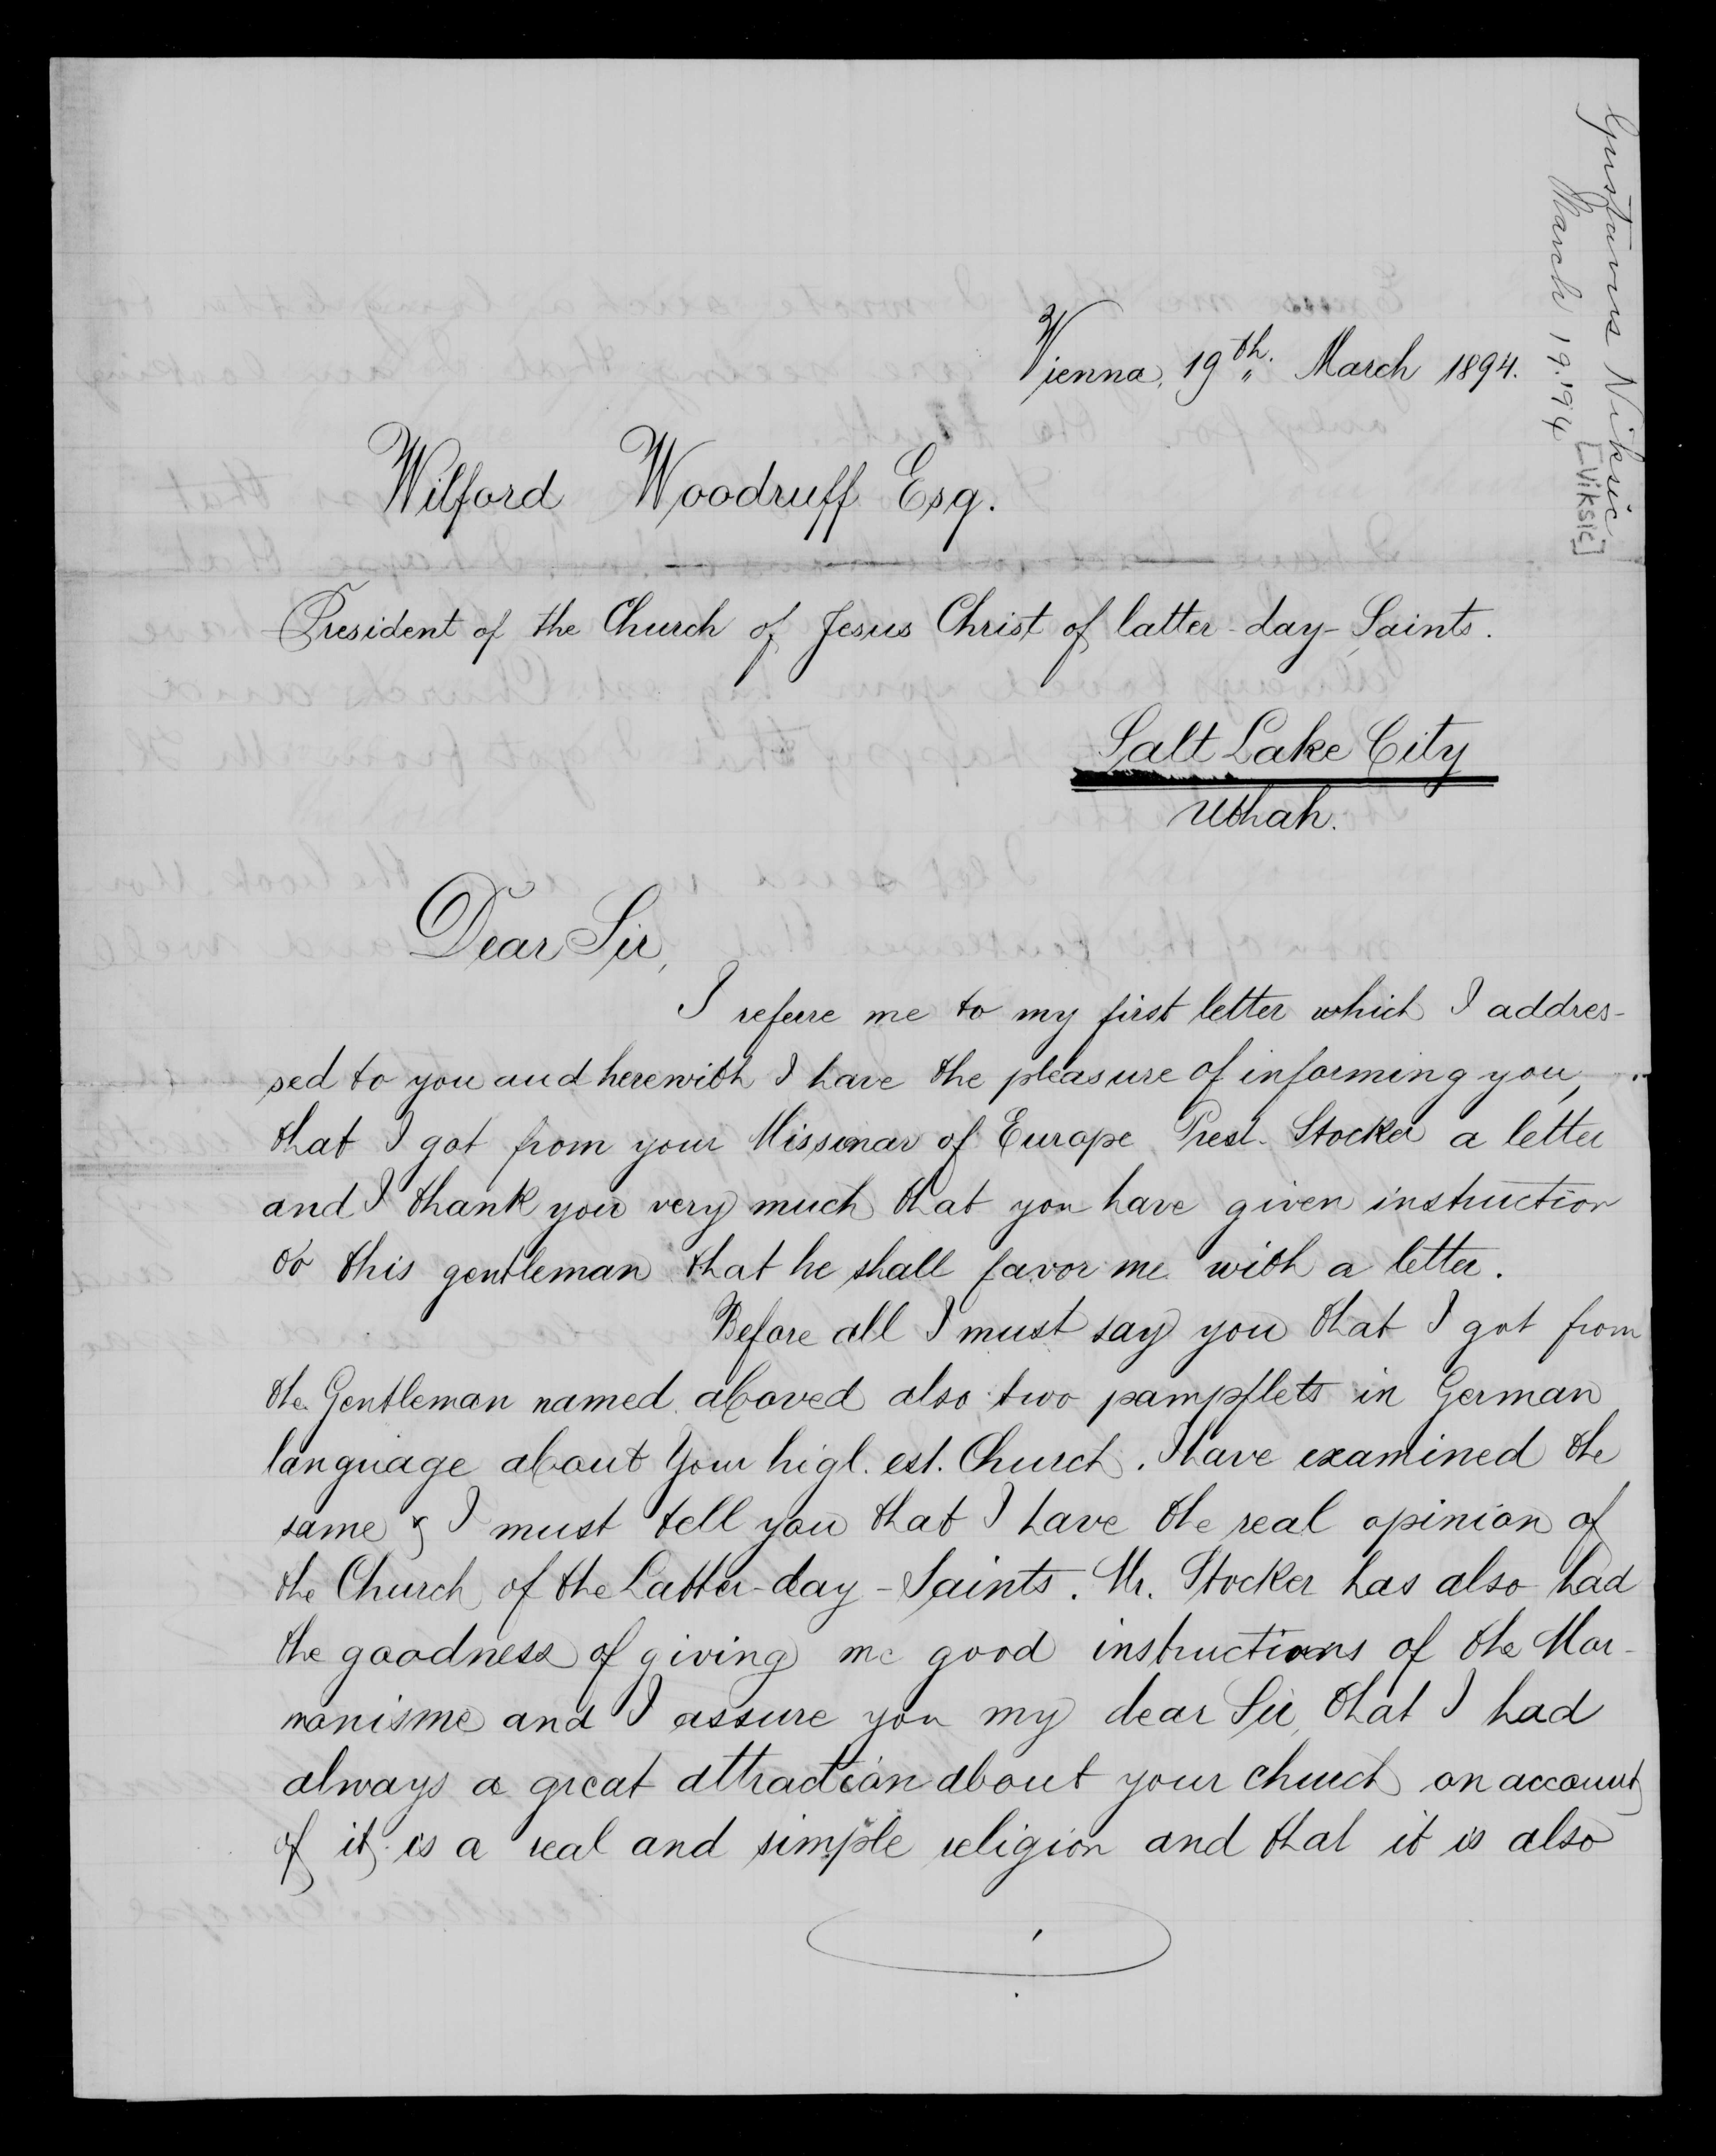 Gustavus Niksic
[Viksic]
March 19.'94
Vienna, 19th. March 1894.
Wilford Woodruff Esq.
President of the Church of Jesus Christ of latter-day-Saints.
Salt Lake City
Uthah.
Dear Sir,
I refere me to my first letter which I addres-
sed to you and herewith I have the pleasure of informing you,
that I got from your Missonar of Europe Prest. Stocker a letter
and I thank you very much that you have given instruction
to this gentleman that he shall favor me with a letter.
Before all I must say you that I got from
the Gentleman named aboved also two pampflets in German
language about Your higl. est. Church. I have examined the
same & I must tell you that I have the real opinion of
the Church of the Latter-day-Saints. Mr. Stocker has also had
the goodness of giving me good instructions of the Mor-
monisme and I assure you my dear Sir, that I had
always a great attraction about your church on account
of it is a real and simple religion and that it is also